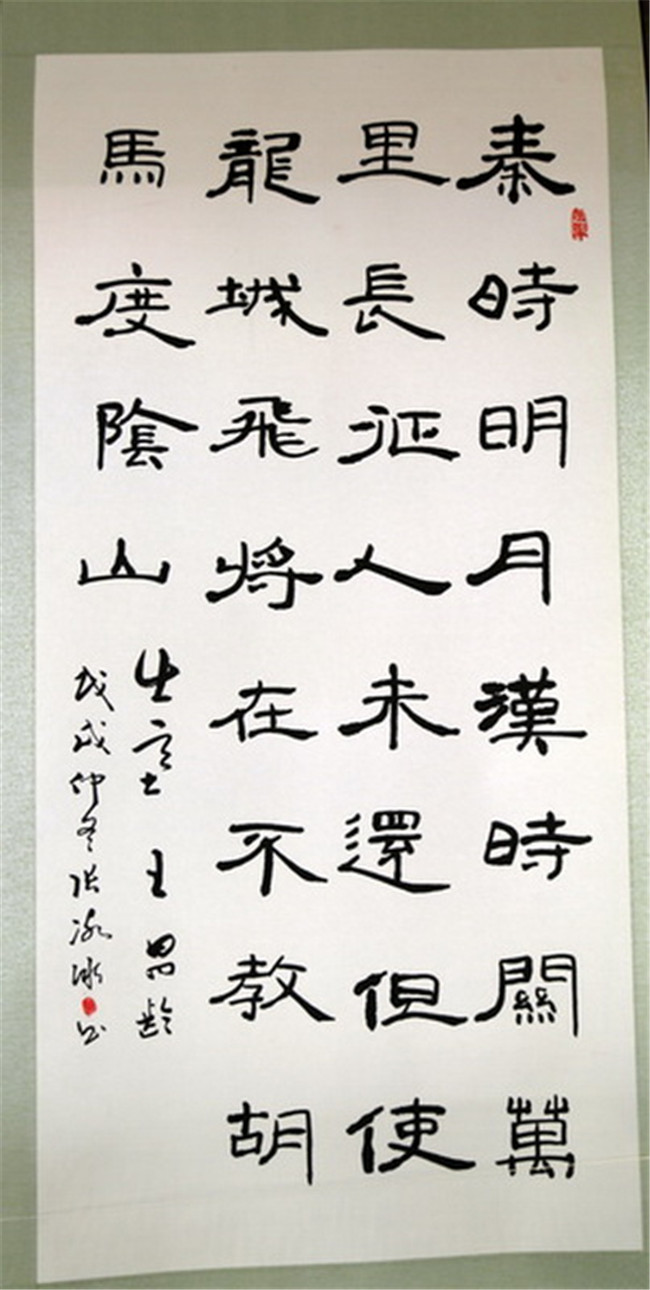 秦時明月漢時關萬
里長征人未還但使
龍城飛將在不教胡
馬度陰山
出塞 王昌齡
戊戌仲冬洪